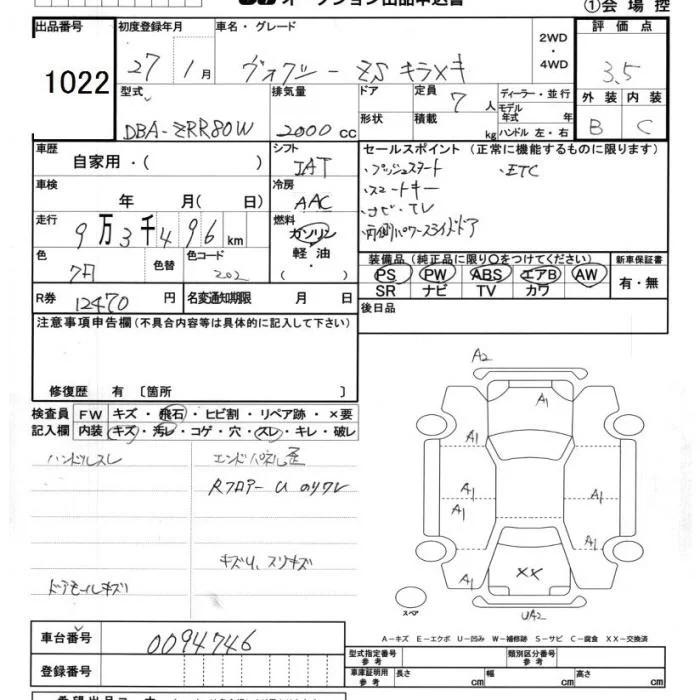 オークション出品申込書 ①会場控
出品番号 初度登録年月 車名・グレード 2WD・4WD 評価点
1022 27年1月 ヴォクシー ZS キラメキ 3.5
型式 排気量 ドア 定員 7人 ディーラー・並行 外装 内装
DBA-ZRR80W 2000cc 形状 積載 kg モデル年式 年 ハンドル 左・右 B C
車歴 自家用・( ) シフト IAT セールスポイント (正常に機能するものに限ります)
・プッシュスタート ・ETC
・スマートキー
・ナビ・TV
・両側パワースライドドア
車検 年 月(日) 冷房 AAC
走行 9万3千496km 燃料 ガソリン 軽油 ・( )
色 色替 色コード 202
装備品(純正品に限り○をつけてください) 新車保証書
PS PW ABS エアB AW 有・無
SR ナビ TV カワ
R券 12470円 名変通知期限 月 日 後日品
注意事項申告欄(不具合内容等は具体的に記入して下さい)
修復歴 有 〔箇所 〕
検査員 FW キズ・飛石・ヒビ割・リペア跡・×要
記入欄 内装 キズ・汚レ・コゲ・穴・スレ・キレ・破レ
ハンドルスレ エンドパネル歪
Rフロアー U
キズU、スリキズ
ドアモールキズ
A2
A1
A1
A1
A1
A1
A1
A1
XX
UA2
スペア
A-キズ E-エクボ U-凹み W-補修跡 S-サビ C-腐食 XX-交換済
車台番号 0094746
型式指定番号 参考 類別区分番号 参考
登録番号
車庫証明用 参考 長さ cm 幅 cm 高さ cm